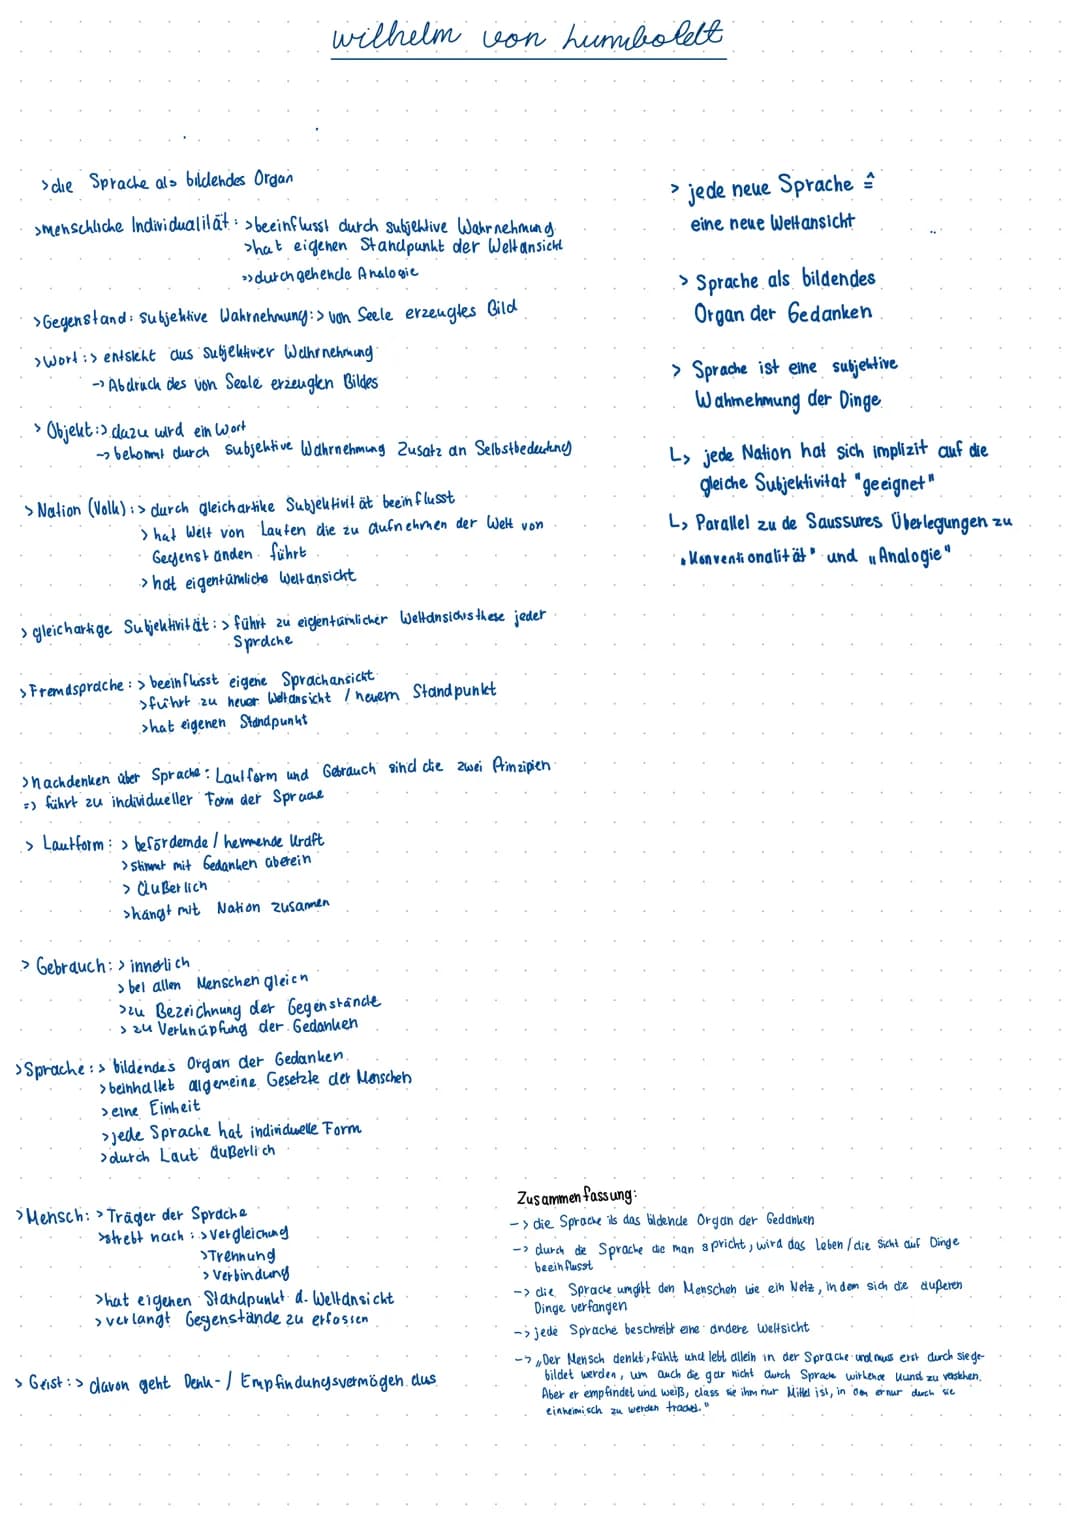 wilhelm von humboldt
> die Sprache als bildendes Organ
> menschliche Individualität: > beeinflusst durch subjektive Wahrnehmung
> hat eigenen Standpunkt der Weltansicht
>> durchgehende Analogie
> Gegenstand: subjektive Wahrnehmung: > von Seele erzeugtes Bild
> Wort: > entsteht aus subjektiver Wahrnehmung
-> Abdruck des von Seele erzeugten Bildes
> Objekt: > dazu wird ein Wort
-> bekommt durch subjektive Wahrnehmung Zusatz an Selbstbedeutung
> Nation (Volk): > durch gleichartike Subjektivität beeinflusst
> hat Welt von Lauten die zu aufnehmen der Welt von
Gegenständen führt
> hat eigentümliche Weltansicht
> gleichartige Subjektivität: > führt zu eigentümlicher Weltansichtsthese jeder
Sprache
> Fremdsprache: > beeinflusst eigene Sprachansicht
> führt zu neuer Weltansicht / neuem Standpunkt
> hat eigenen Standpunkt
> nachdenken über Sprache: Lautform und Gebrauch sind die zwei Prinzipien
=> führt zu individueller Form der Sprache
> Lautform: > befördernde / hemmende Kraft
> stimmt mit Gedanken überein
> äußerlich
> hängt mit Nation zusamen
> Gebrauch: > innerlich
> bei allen Menschen gleich
> zu Bezeichnung der Gegenstände
> zu Verknüpfung der Gedanken
> Sprache: > bildendes Organ der Gedanken
> beinhaltet allgemeine Gesetzte der Menschen
> eine Einheit
> jede Sprache hat individuelle Form
> durch Laut äußerlich
> Mensch: > Träger der Sprache
> strebt nach: > Vergleichung
> Trennung
> Verbindung
> hat eigenen Standpunkt d. Weltansicht
> verlangt Gegenstände zu erfassen
> Geist: > davon geht Denk- / Empfindungsvermögen aus
> jede neue Sprache ≙
eine neue Weltansicht
> Sprache als bildendes
Organ der Gedanken
> Sprache ist eine subjektive
Wahrnehmung der Dinge
↳ jede Nation hat sich implizit auf die
gleiche Subjektivität "geeignet"
↳ Parallel zu de Saussures Überlegungen zu
"Konventionalität" und "Analogie"
Zusammenfassung:
-> die Sprache ils das bildende Organ der Gedanken
-> durch de Sprache die man spricht, wird das Leben / die Sicht auf Dinge
beeinflusst
-> die Sprache umgibt den Menschen wie ein Netz, in dem sich die äußeren
Dinge verfangen
-> jede Sprache beschreibt eine andere Weltsicht
-> "Der Mensch denkt, fühlt und lebt allein in der Sprache und mus erst durch sie ge-
bildet werden, um auch die gar nicht durch Sprache wirkende Kunst zu verstehen.
Aber er empfindet und weiß, dass sie ihm nur Mittel ist, in dem er nur durch sie
einheimisch zu werden trachtet."